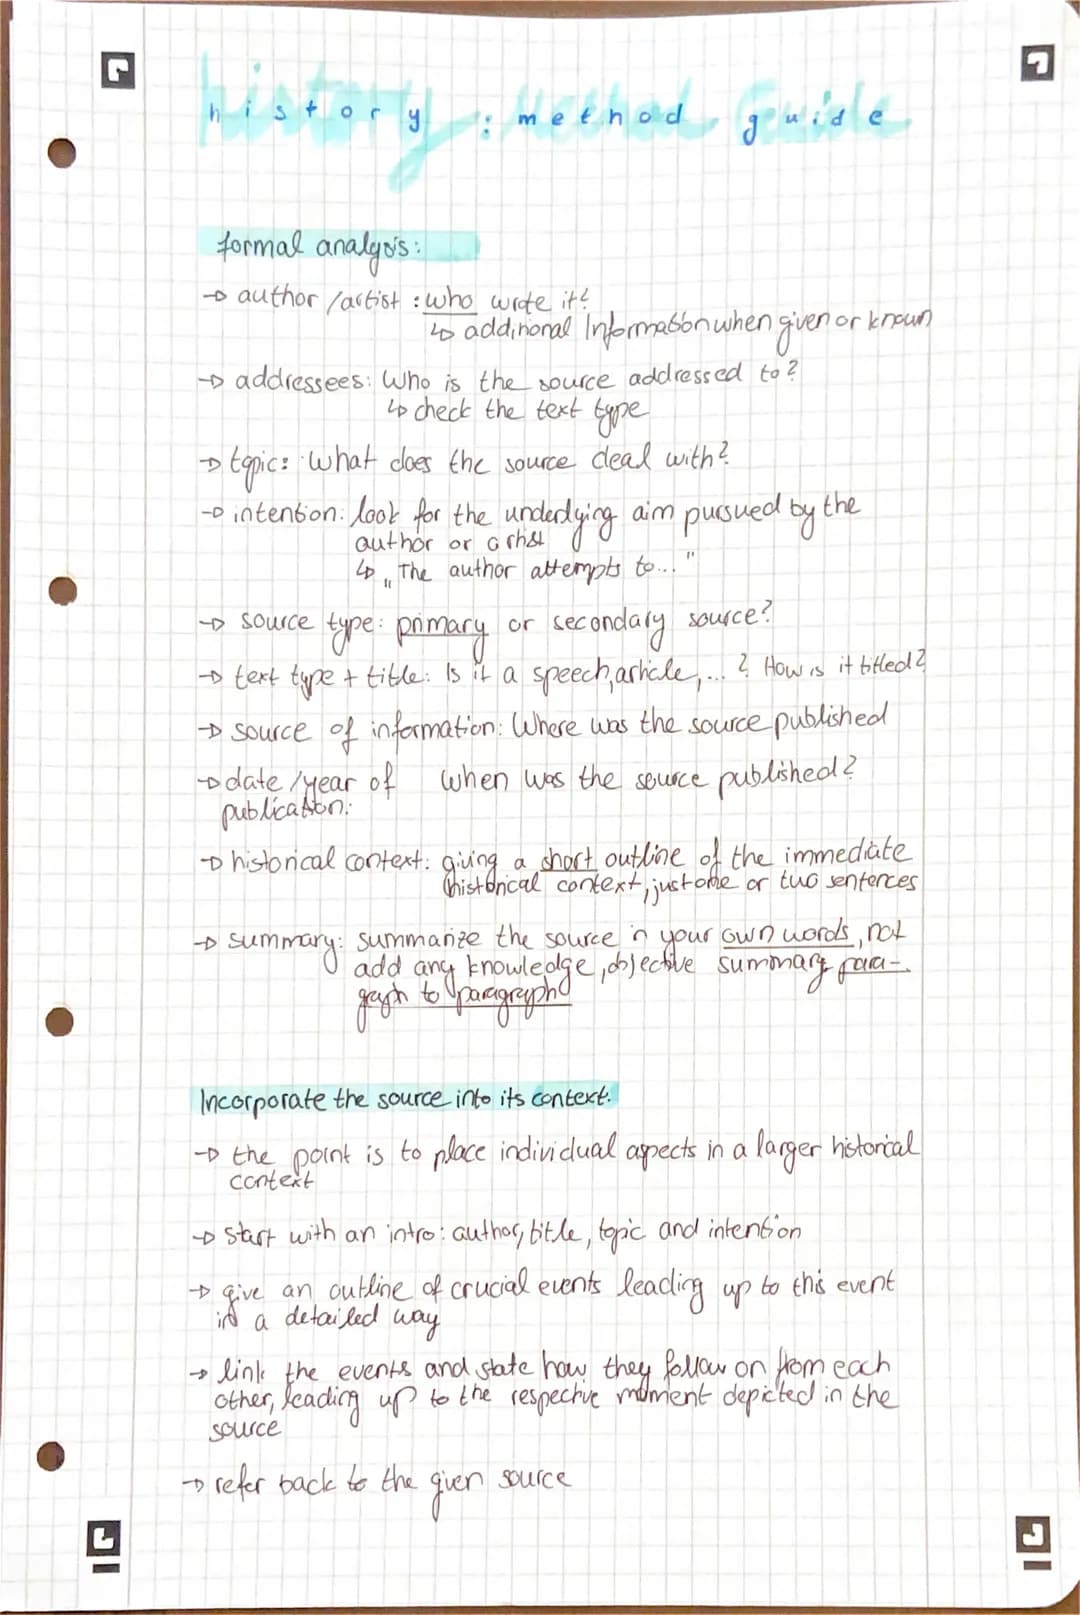 history : method guide
formal analysis:
→ author/artist : who wrote it?
↳ additional Information when given or known
→ addressees: Who is the source addressed to?
↳ check the text type
→ topic: What does the source deal with?
→ intention: look for the underlying aim pursued by the
author or artist
↳ „The author attempts to..."
→ source type: primary or secondary source?
→ text type + title: Is it a speech, article,...? How is it titled?
→ source of information: Where was the source published
→ date/year of When was the source published?
publication:
→ historical context: giving a short outline of the immediate
historical context, just one or two sentences
→ summary: summarize the source in your own words, not
add any knowledge, objective summary para-
graph to paragraph
Incorporate the source into its context.
→ the point is to place individual aspects in a larger historical
context
→ start with an intro: author, title, topic and intention
→ give an outline of crucial events leading up to this event
in a detailed way
→ link the events and state how they follow on from each
other, leading up to the respective moment depicted in the
source
→ refer back to the given source